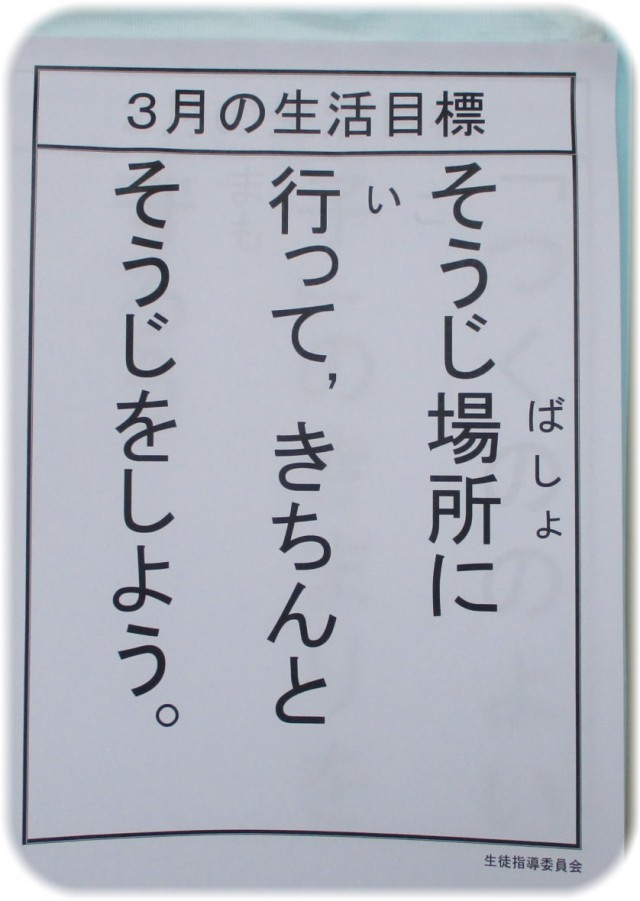 3月の生活目標
そうじ場所に
ばしょ
行って，きちんと
い
そうじをしよう。
生徒指導委員会